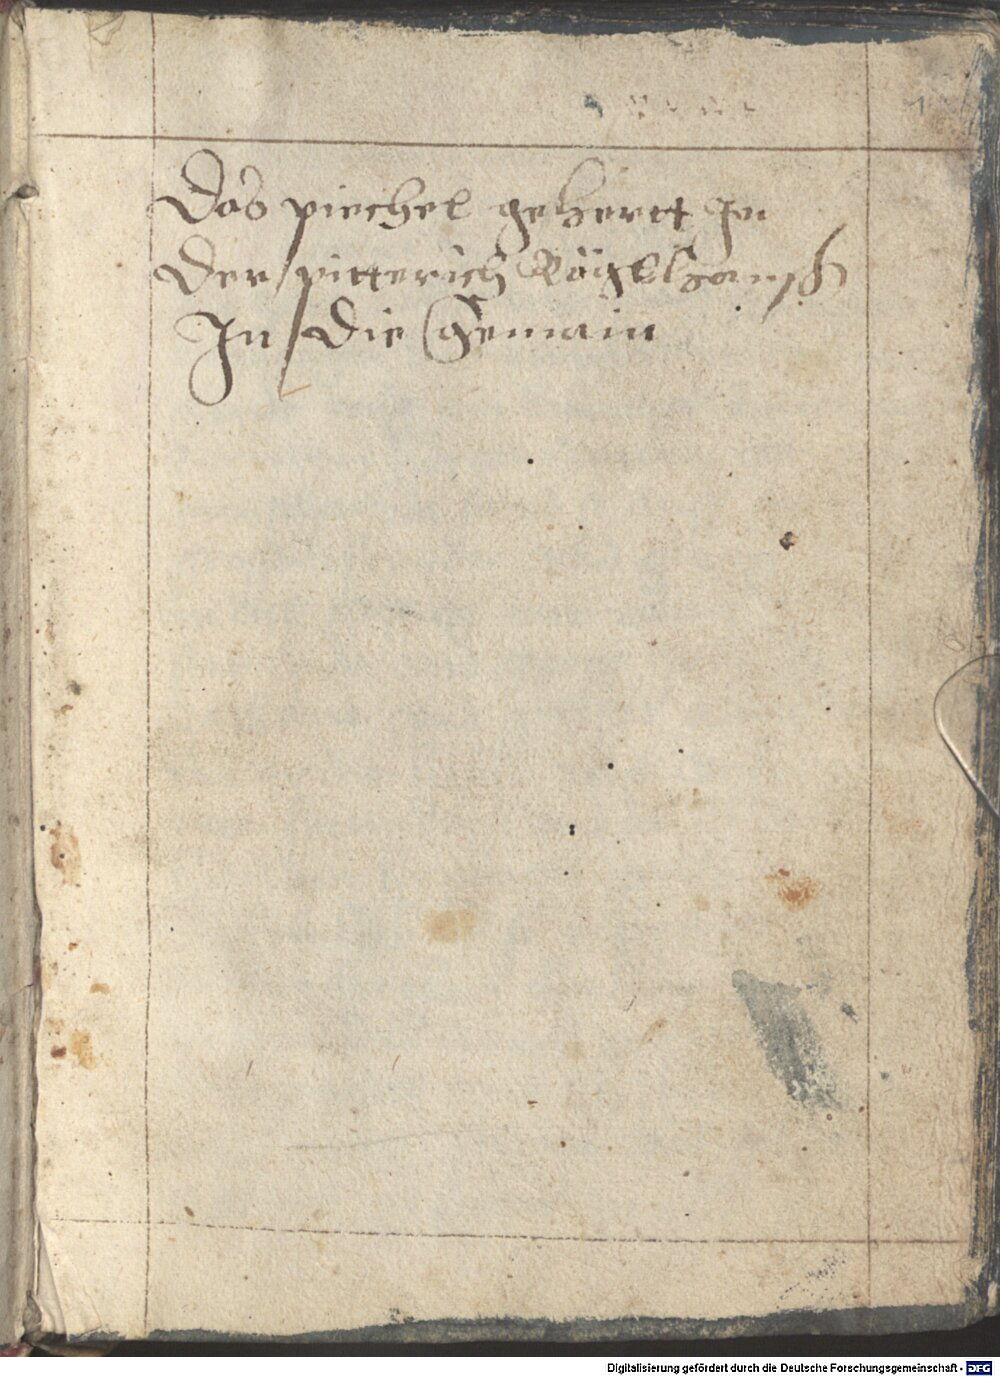 1
Das piechel gehertt Jn
Der pitterich Rögelhauſs
Jn Die Gemain
Digitalisierung gefördert durch die Deutsche Forschungsgemeinschaft - DFG